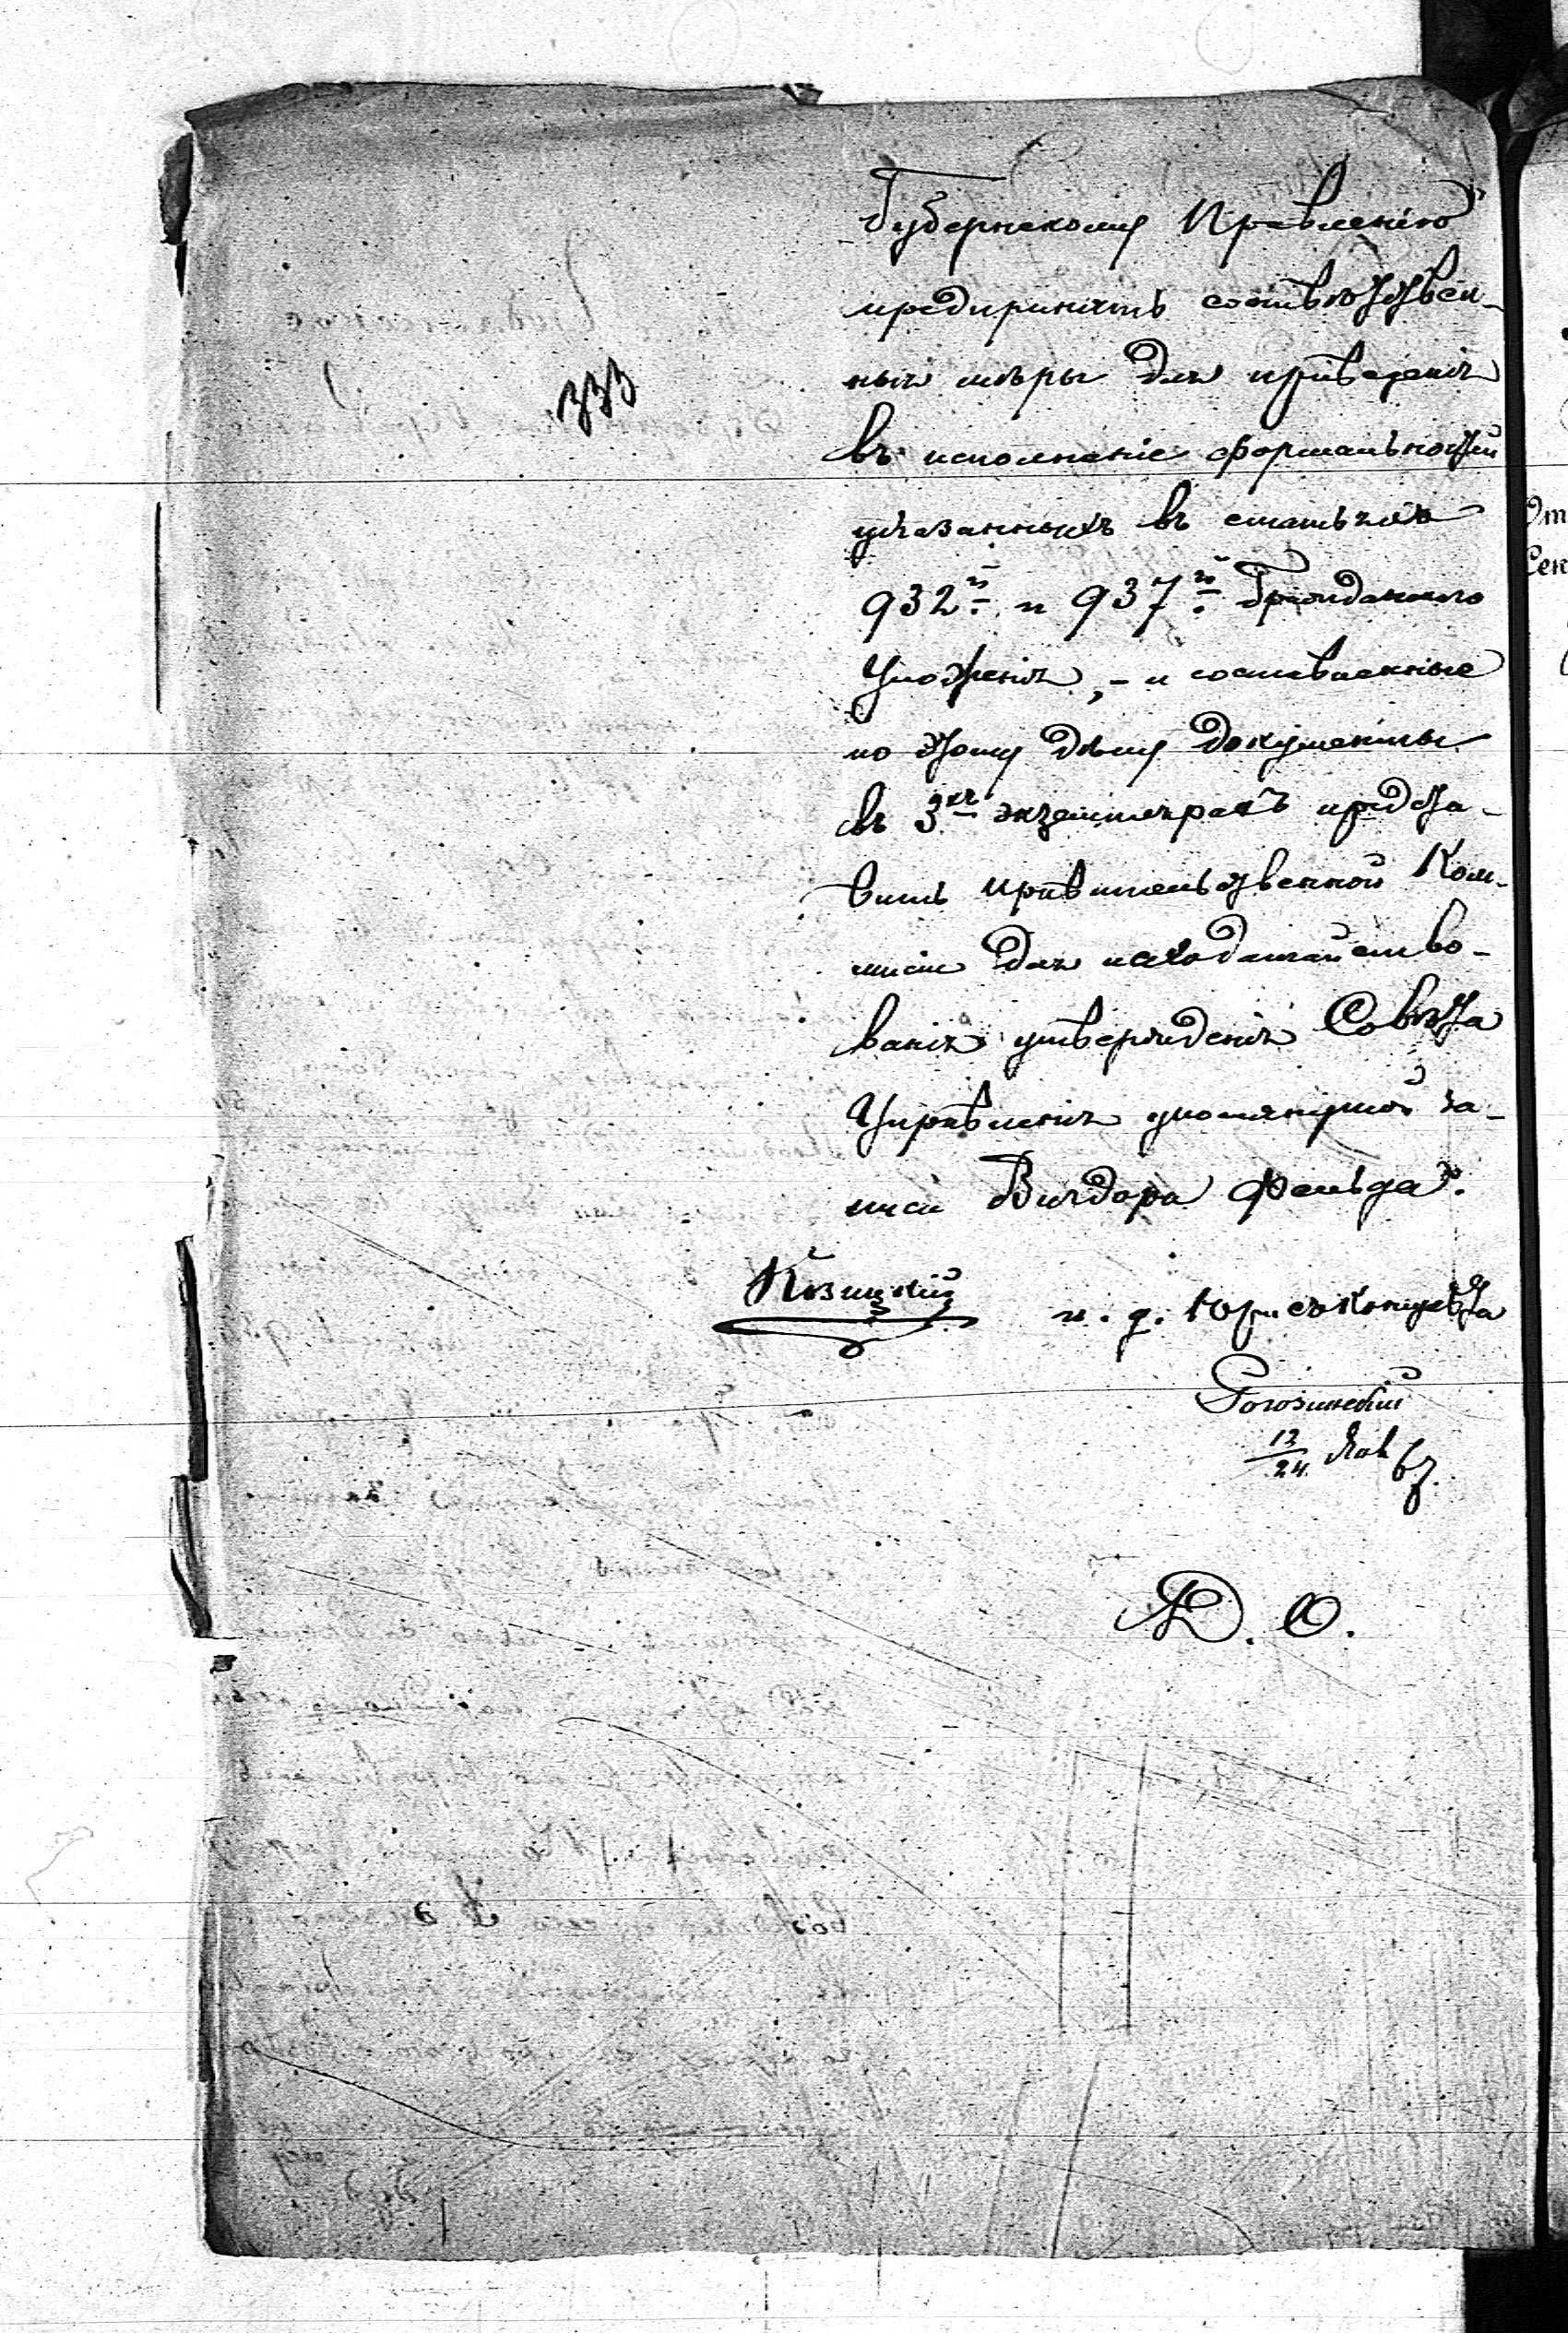 Губернскому Правленію
предпринять соотвѣтствен-
ныя мѣры для приведенія
въ исполненіе формальностей
указанныхъ въ статьяхъ
932й и 937й Гражданскаго
Уложенія, - и составленные
по этому дѣлу документы
въ 3хъ экземплярахъ предста-
вить Правительственной Ком-
мисіи для исходатайство-
ванія утвержденія Совѣта
Управленія упомянутой за-
писи Виктора Фельда.
333
Козицкій
и. д. Юрисконсульта
Рогозинскій
12/24 67.